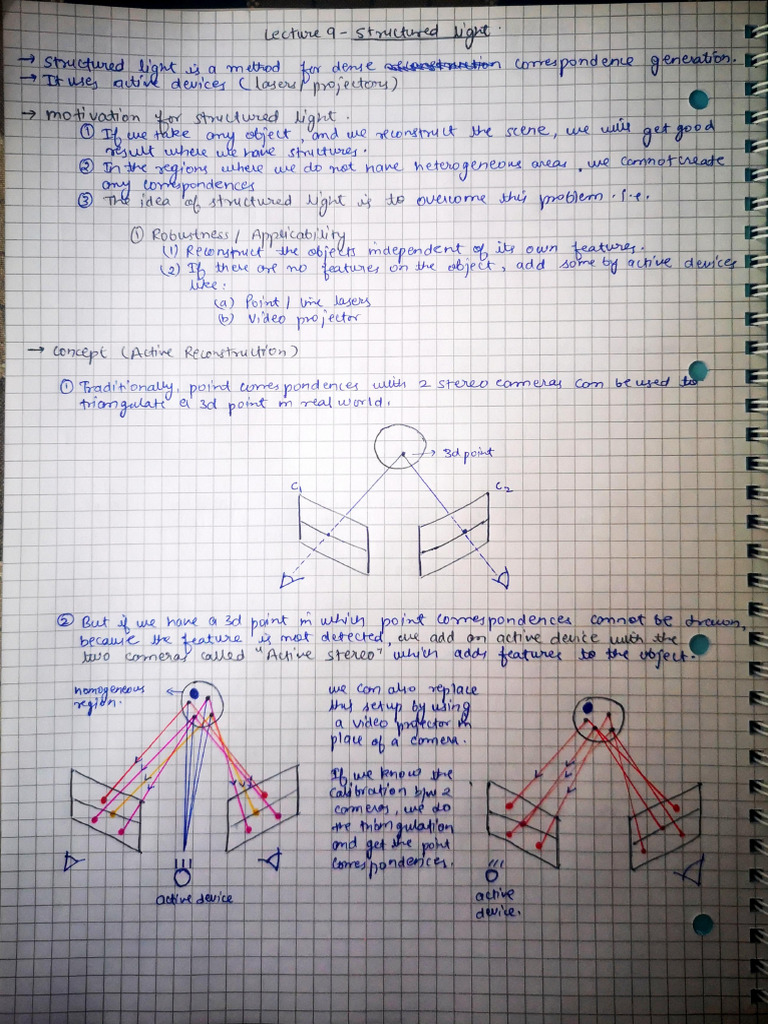 Lecture 9 - Structured light.
→ Structured light is a method for dense reconstruction correspondence generation.
→ It uses active devices (lasers/projectors)
→ motivation for structured light.
① If we take any object, and we reconstruct the scene, we will get good
result where we have structures.
② In the regions where we do not have heterogeneous areas, we cannot create
any correspondences
③ The idea of structured light is to overcome this problem. i.e.
① Robustness / Applicability
(1) Reconstruct the objects independent of its own features.
(2) If there are no features on the object, add some by active devices
like:
(a) Point / line lasers
(b) Video projector
→ Concept (Active Reconstruction)
① Traditionally, point correspondences with 2 stereo cameras can be used to
triangulate a 3d point in real world.
3d point
C1
C2
② But if we have a 3d point in which point correspondences cannot be drawn,
because the feature is not detected, we add an active device with the
two cameras called "Active stereo" which adds features to the object.
homogeneous
region.
active device
we can also replace
this setup by using
a video projector in
place of a camera.
If we know the
calibration b/w 2
cameras, we do
the triangulation
and get the point
correspondences.
active
device.